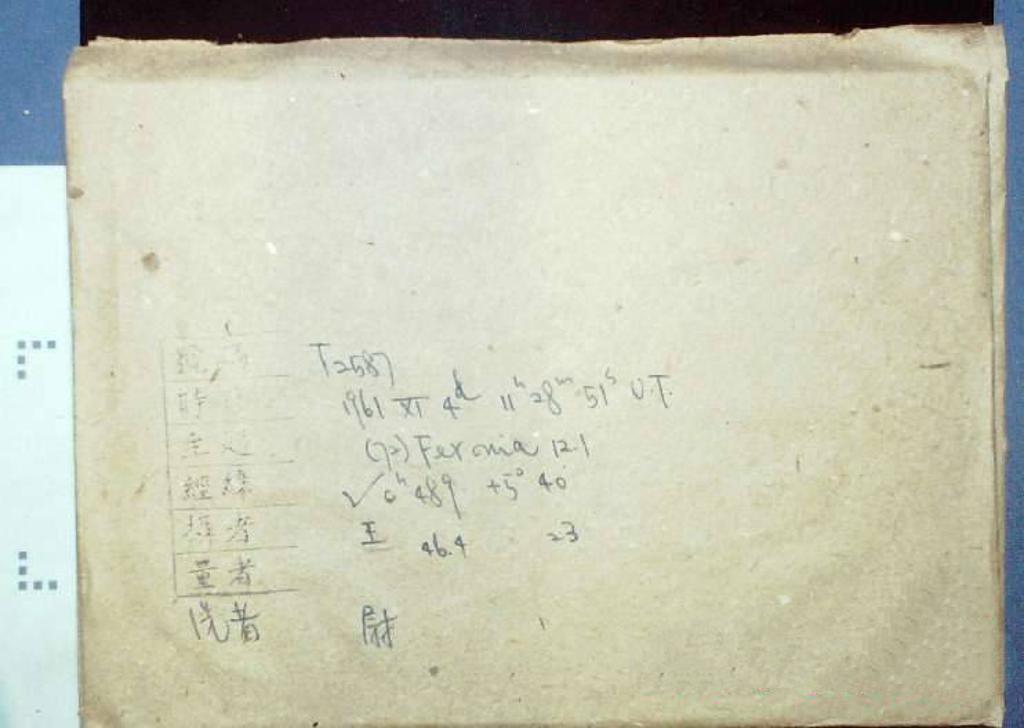 號 T2587
時 1961 XI 4ᵈ 11ʰ 28ᵐ 51ˢ U.T.
(72) Feronia 12.1
經緯 ✓ 0ʰ 48.9 +5° 40'
擇者 王 46.4 23
量者
洗者 尉